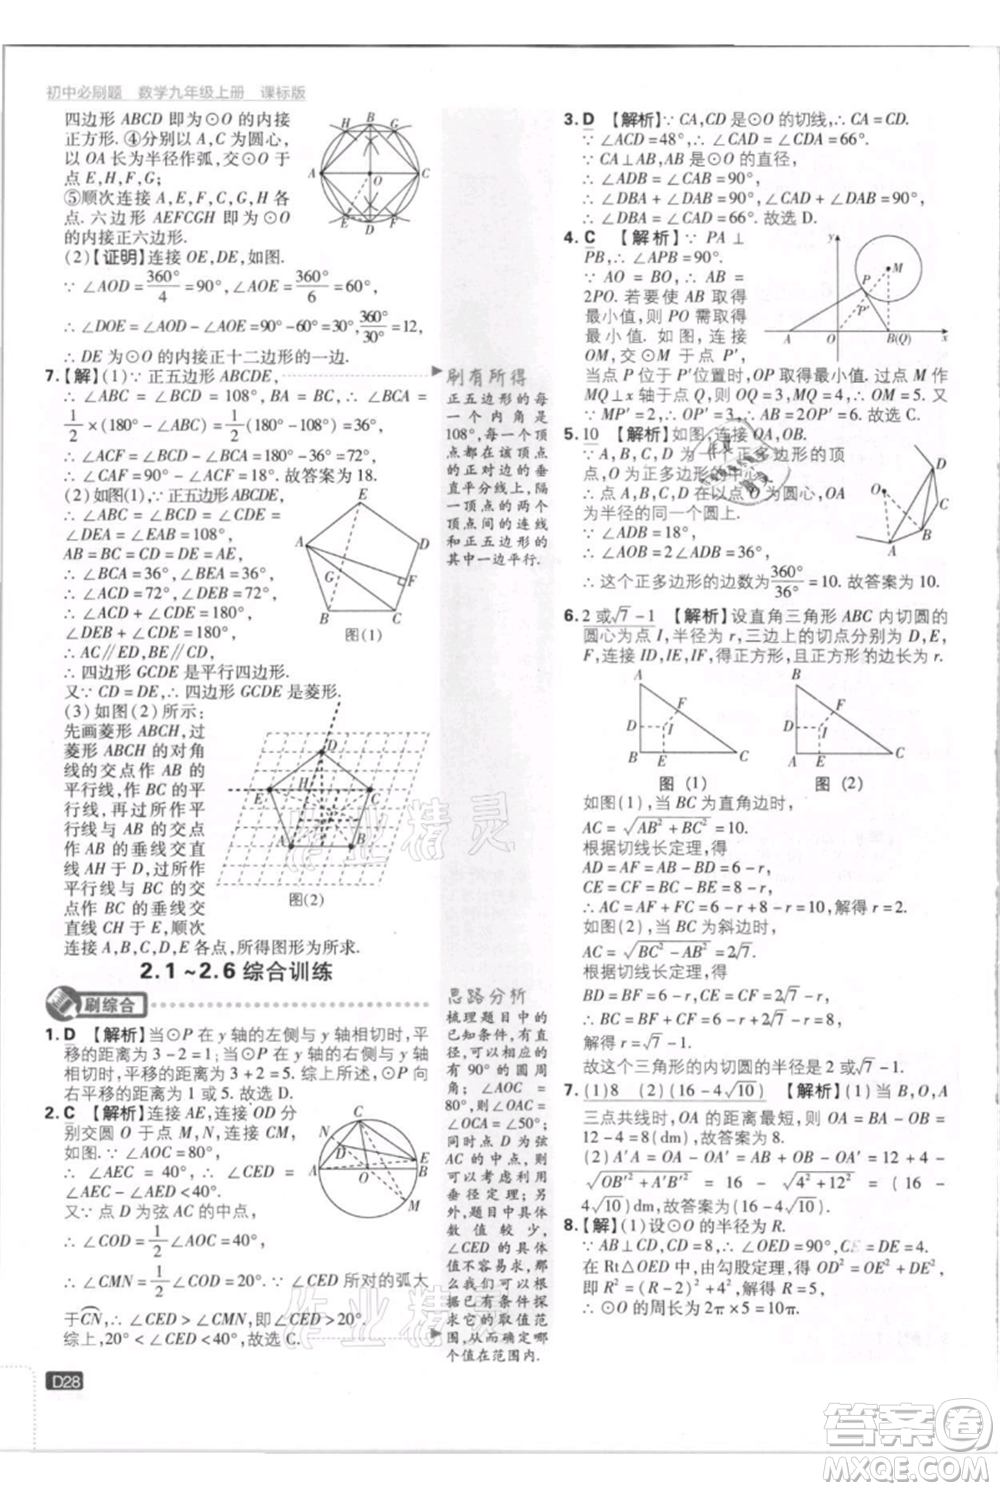 初中必刷题 数学九年级上册 课标版
四边形 ABCD 即为⊙O 的内接
正方形. ④分别以 A,C 为圆心,
以 OA 长为半径作弧,交⊙O 于
点 E,F,H,G;
⑤顺次连接 A,E,F,C,G,H 各
点. 六边形 AEFCGH 即为⊙O
的内接正六边形.
(2)【证明】连接 OE,DE,如图.
∵ ∠AOD = 360°/4 = 90°,∠AOE = 360°/6 = 60°,
∴ ∠DOE = ∠AOD − ∠AOE = 90° − 60° = 30°, 360°/30° = 12,
∴ DE 为⊙O 的内接正十二边形的一边.
7.【解】(1)∵ 正五边形 ABCDE,
∴ ∠ABC = ∠BCD = 108°,BA = BC,∴ ∠BCA =
1/2 ×(180° − ∠ABC) = 1/2(180° − 108°) = 36°,
∴ ∠ACF = ∠BCD − ∠BCA = 108° − 36° = 72°,
∴ ∠CAF = 90° − ∠ACF = 18°. 故答案为 18.
(2)如图(1),∵正五边形 ABCDE,
∴ ∠DEA = ∠EAB = 108°,
AB = BC = CD = DE = AE,
∴ ∠BCA = 36°,∠BEA = 36°,
∴ ∠ACD = 72°,∠DEG = 72°,
∴ ∠ACD + ∠D = 180°,
∠DEG + ∠D = 180°,
∴ AC∥ED,CD∥BE,
∴ 四边形 GCDE 是平行四边形.
又∵ CD = DE,∴ 四边形 GCDE 是菱形.
(3)如图(2)所示:
先画菱形 ABCH,过
菱形 ABCH 的对角
线的交点作 AB 的
平行线,作 BC 的平
行线与 AB 的交点
作 AB 的垂线,过菱
形 ABCH 的对角线
的交点作 BC 的平
行线与 BC 的交
点作 BC 的垂线交
直线 CH 于 E,顺次
连接 A,B,C,D,E 各点,所得图形为所求.
图(1)
图(2)
2.1~2.6 综合训练
刷综合
1. D 【解析】当⊙P 在 y 轴的左侧与 y 轴相切时,平
移的距离为 3 − 2 = 1;当⊙P 在 y 轴的右侧与 y 轴
相切时,平移的距离为 3 + 2 = 5. 综上所述,⊙P 向
右平移的距离为 1 或 5. 故选 D.
2. C 【解析】连接 AE,设 OD 分
别交圆 O 于点 M,N,连接 CM,
如图. ∵ ∠AOC = 80°,
∴ ∠AEC = 40°,∴ ∠CED =
∠AEC − ∠AED < 40°.
∵ 点 D 为弦 AC 的中点,
∴ ∠COD = 1/2∠AOC = 40°,
∴ ∠CMN = 1/2∠COD = 20°. ∵ ∠CED 所对的弧大
于CN,∴ ∠CED > ∠CMN,即∠CED > 20°.
综上,20° < ∠CED < 40°,故选 C.
D28
刷有所得
正五边形的每
一个内角是
108°,每一个顶
点都在该顶点
的正对边的垂
直平分线上,隔
一顶点的两个
顶点间的连线
和正五边形的
其中一边平行.
思路分析
梳理题目中的
已知条件,有半
径、有弦、没
有 90° 的圆周
角; ∠AOC =
80°,则∠OAC =
∠OCA = 50°;
同时点 D 为弦
AC 的中点,可
考虑利用利用
垂径定理;另
外,题目中具体
数值较少,
∠CED 的具体
值无法确定,那
么我们不妨根
据已有条件探
求它的取值范
围,从而确定哪
个值在范围内.
3. D 【解析】∵ CA,CD 为⊙O 的切线,∴ CA = CD.
∵ ∠ACD = 48°,∴ ∠CAD = ∠CDA = 66°.
∵ CA⊥AB,AB 是⊙O 的直径,
∴ ∠ADB = ∠CAB = 90°,
∴ ∠DBA + ∠DAB = ∠CAD + ∠DAB = 90°,
∴ ∠DBA = ∠CAD = 66°. 故选 D.
4. C 【解析】∵ PA⊥
PB,∴ ∠APB = 90°.
∵ AO = BO,∴ AB =
2PO. 若要使 AB 取得
最小值,则 PO 需取得
最小值. 如图,连接
OM,交⊙M 于点 P′,
当点 P 位于 P′位置时,OP 取得最小值,过点 M 作
MQ⊥x 轴于点 Q,则 OQ = 3,MQ = 4,∴ OM = 5. 又
∵ MP′ = 2,∴ OP′ = 3,∴ AB = 2OP′ = 6. 故选 C.
5. 10 【解析】如图,连接 OA,OB.
∵ A,B,C,D 为一个正多边形的顶
点,O 为正多边形的中心,
∴ 点 A,B,C,D 在以点 O 为圆心,OA
为半径的同一个圆上.
∵ ∠ADB = 18°,
∴ ∠AOB = 2∠ADB = 36°,
∴ 这个正多边形的边数为 360°/36° = 10. 故答案为 10.
6. 2 或√7 − 1 【解析】设直角三角形 ABC 内切圆的
圆心为点 I,半径为 r,三边上的切点分别为 D,E,
F,连接 ID,IE,IF,得正方形,则正方形的边长为 r.
图(1) 图(2)
如图(1),当 BC 为直角边时,
AC = √(AB² + BC²) = 10.
根据切线长定理,得
AF = AD = AB − BD = 6 − r,
CE = CF = BC − BE = 8 − r,
∴ AC = AF + FC = 6 − r + 8 − r = 10,解得 r = 2.
如图(2),当 BC 为斜边时,
AC = √(BC² − AB²) = 2√7,
根据切线长定理,得
BD = BE = 6 − r,CE = CF = 2√7 − r,
∴ BC = BE + CE = 6 − r + 2√7 − r = 8,
解得 r = √7 − 1.
故这个三角形的内切圆的半径是 2 或√7 − 1.
7. (1)8 (2)(16 − 4√10) 【解析】(1)当 B,O,A
三点共线时,OA 的距离最短,所以 OA = BA − OB =
12 − 4 = 8(dm),故答案为 8.
(2) A′A = OA − OA′ = AB + OB − OA′ =
√(OB′² + A′B′²) = 16 − √(4² + 12²) = (16 −
4√10)(dm),故答案为(16 − 4√10).
8.【解】(1)设⊙O 的半径为 R.
∵ AB⊥CD,CD = 8,∴ ∠OED = 90°,CE = DE = 4.
在 Rt△ODE 中,由勾股定理得 OD² = OE² + DE²,
即 R² = (R − 2)² + 4²,解得 R = 5,
∴ ⊙O 的周长为 2π × 5 = 10π.
作业精灵
作业精灵
答案卷
MXQE.COM